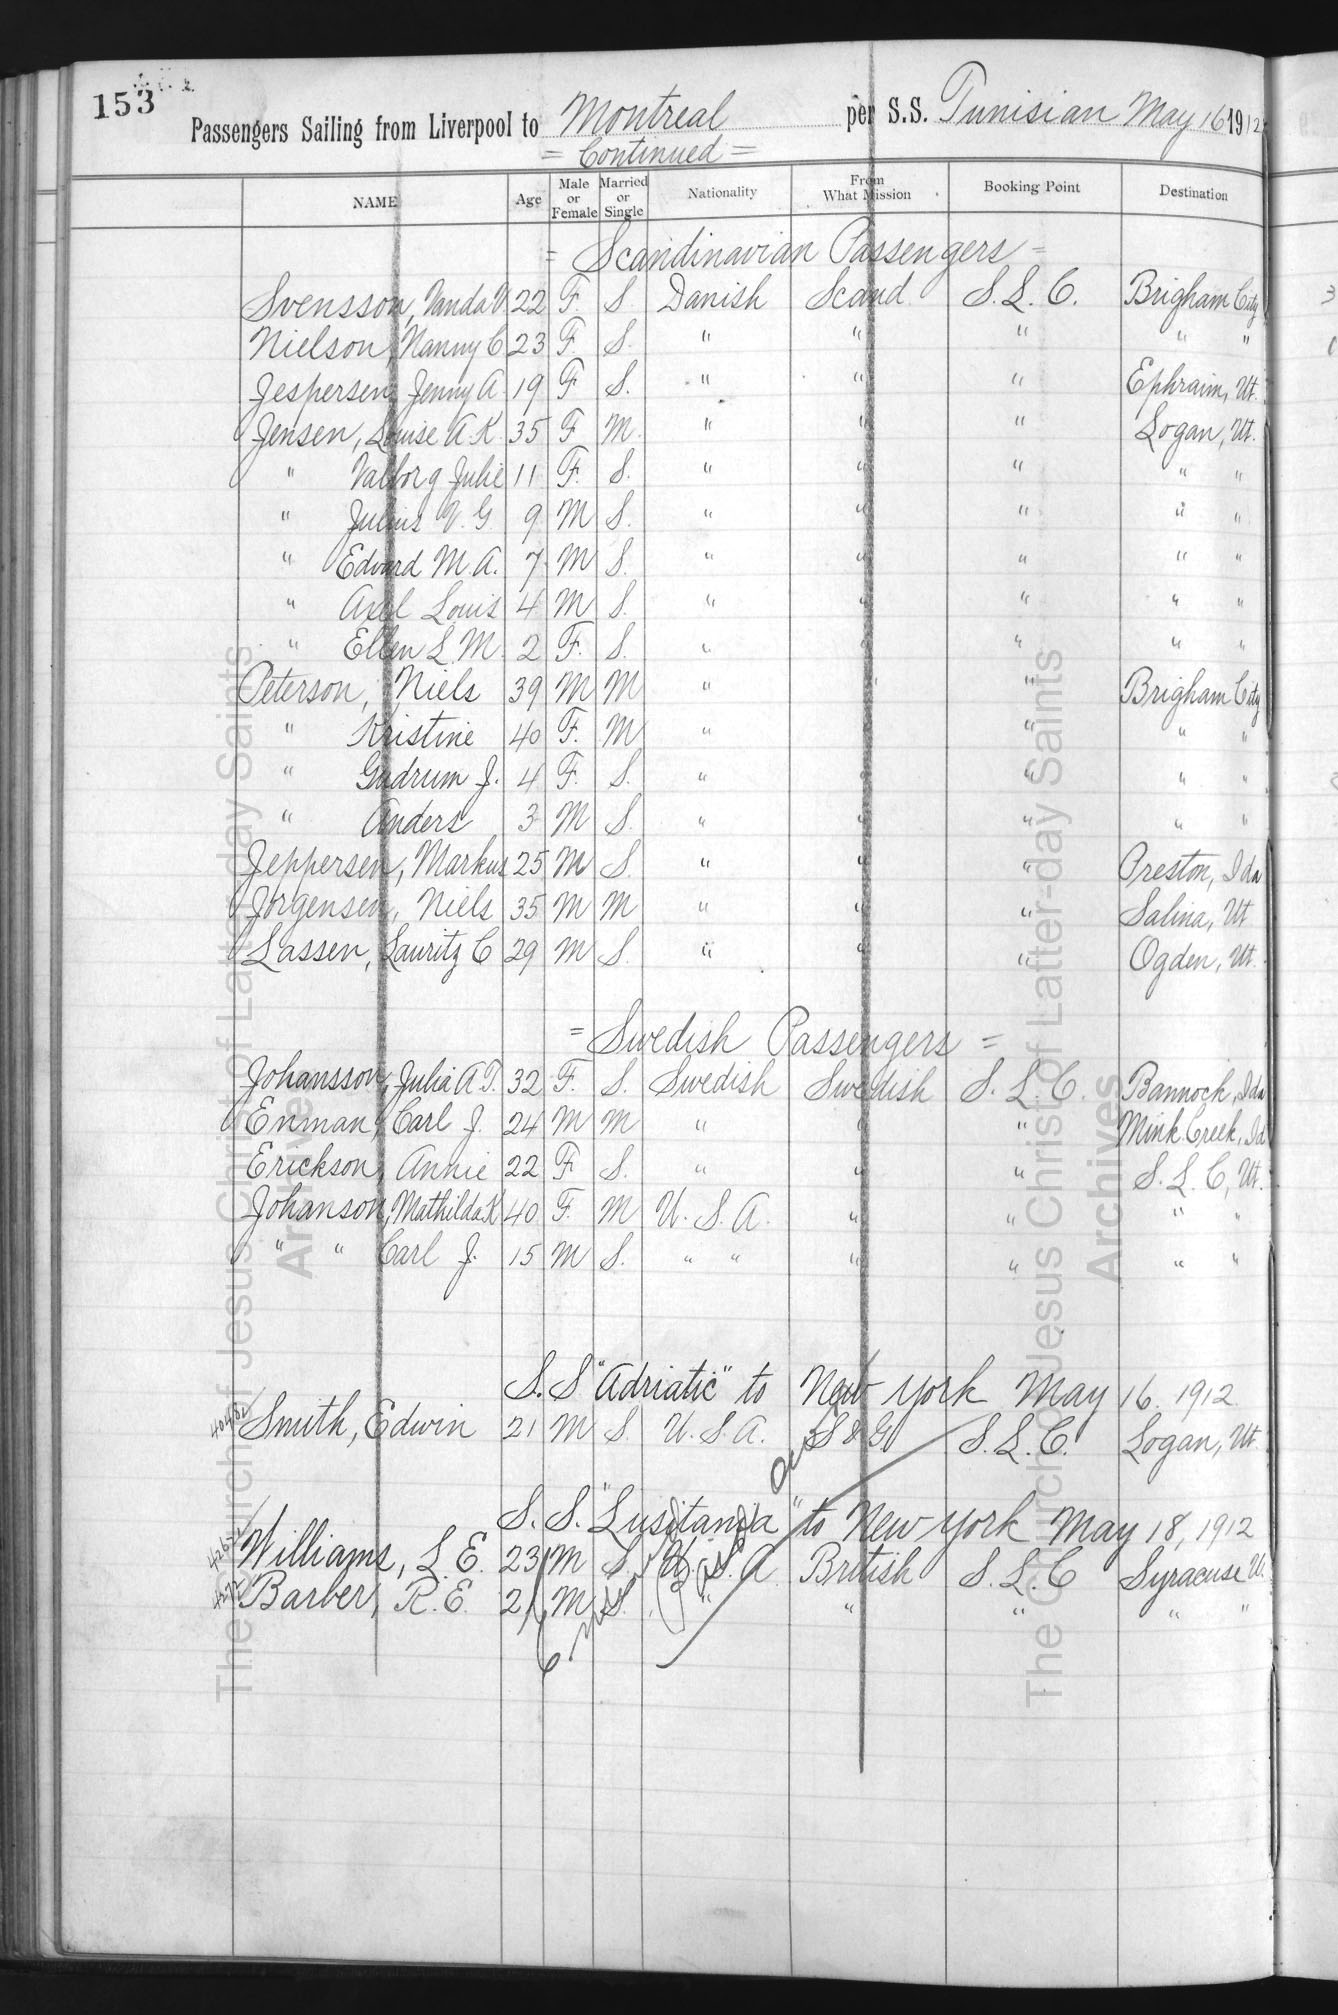 153
Passengers Sailing from Liverpool to Montreal per S.S. Tunisian May 16 1912
= Continued =
NAME Age Male or Female Married or Single Nationality From What Mission Booking Point Destination
= Scandinavian Passengers =
Svensson, Vanda V. 22 F. S. Danish Scand. S. L. C. Brigham City
Nielson, Nanny C 23 F. S. " " " " "
Jespersen, Jenny A 19 F S. " " " Ephraim, Ut.
Jensen, Louise A K. 35 F M. " " " Logan, Ut.
" Valborg Julie 11 F. S. " " " " "
" Julius V. G. 9 M S. " " " " "
" Edvard M. A. 7 M S. " " " " "
" Axel Louis 4 M S. " " " " "
" Ellen L. M. 2 F. S. " " " " "
Peterson, Niels 39 M M " " " Brigham City
" Kristine 40 F. M " " " " "
" Gudrum J. 4 F. S. " " " " "
" Anders 3 M S. " " " " "
Jeppersen, Markus 25 M S. " " " Preston, Ida
Jorgensen, Niels 35 M M " " " Salina, Ut
Lassen, Lauritz C 29 M S. " " " Ogden, Ut.
= Swedish Passengers =
Johansson, Julia A. T. 32 F. S. Swedish Swedish S. L. C. Bannock, Ida
Enman, Carl J. 24 M M " " " Mink Creek, Id
Erickson, Annie 22 F S. " " " S. L. C, Ut.
Johanson, Mathilda K 40 F. M U. S. A. " " " "
" " Carl J. 15 M S. " " " " " "
S. S "Adriatic" to New York May 16. 1912
Smith, Edwin 21 M S. U. S. A. S & G S. L. C. Logan, Ut.
S. S. "Lusitania" to New York May 18, 1912
Williams, L. E. 23 M S U. S. A British S. L. C Syracuse U.
Barber, R. E. 21 M S. " " " " "
The Church of Jesus Christ of Latter-day Saints
Archives
The Church of Jesus Christ of Latter-day Saints
Archives